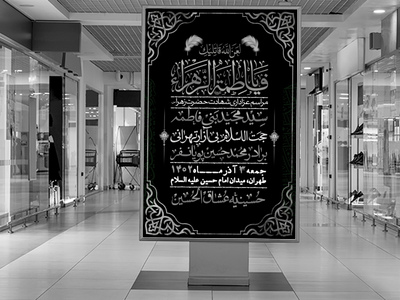 لعن الله قاتلیک
یا فاطمة الزهرا
مراسم عزاداری شهادت حضرت زهرا
سید مجید بنی فاطمه
حجت الاسلام
برادر محمد حسین پویانفر
جمعه ۳ آذر مــاه ۱۴۰۲
طهران، میدان امام حسین علیه السلام
حسینیه عشاق الحسین